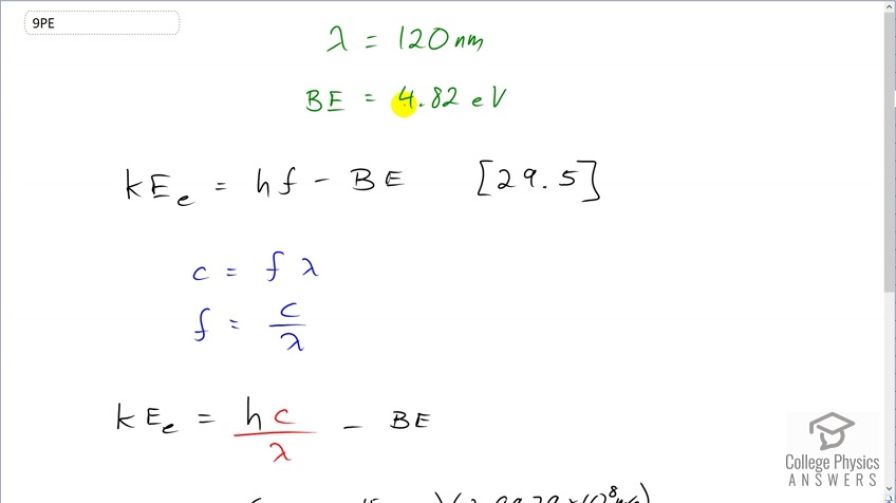 9PE
λ = 120 nm
BE = 4.82 eV
KEe = hf - BE [29.5]
c = f λ
f = c/λ
KEe = hc/λ - BE
College Physics
ANSWERS